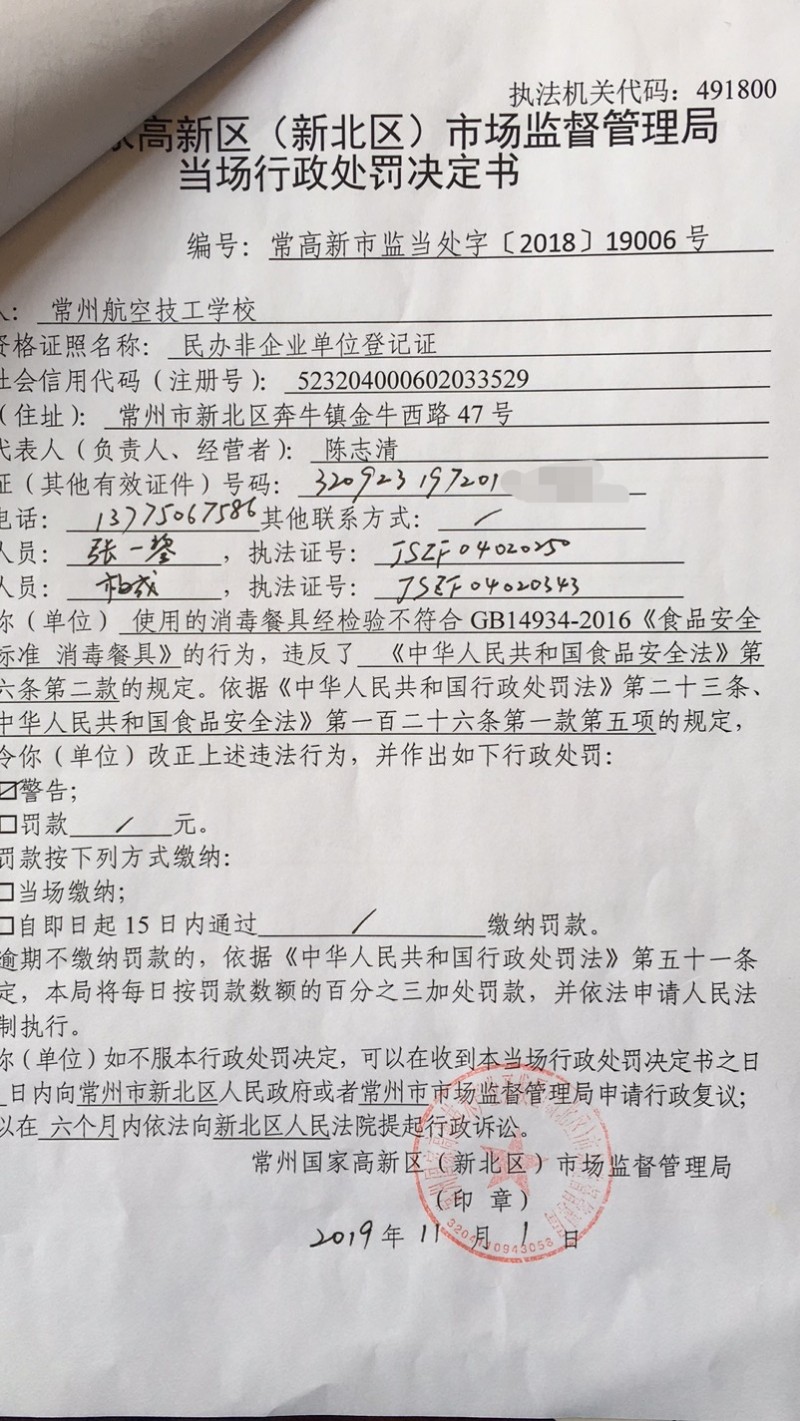 执法机关代码：491800
家高新区（新北区）市场监督管理局
当场行政处罚决定书
编号：常高新市监当处字〔2018〕19006 号
人：常州航空技工学校
资格证照名称：民办非企业单位登记证
社会信用代码（注册号）：523204000602033529
（住址）：常州市新北区奔牛镇金牛西路 47 号
代表人（负责人、经营者）：陈志清
证（其他有效证件）号码：320923197201
电话：13775067586其他联系方式：/
人员：张一鋆，执法证号：JSZF04020250
人员：，执法证号：JSZF04020343
你（单位）使用的消毒餐具经检验不符合 GB14934-2016《食品安全
标准 消毒餐具》的行为，违反了 《中华人民共和国食品安全法》第
六条第二款的规定。依据《中华人民共和国行政处罚法》第二十三条、
中华人民共和国食品安全法》第一百二十六条第一款第五项的规定，
令你（单位）改正上述违法行为，并作出如下行政处罚：
☑警告；
□罚款 / 元。
罚款按下列方式缴纳：
□当场缴纳；
□自即日起 15 日内通过 / 缴纳罚款。
逾期不缴纳罚款的，依据《中华人民共和国行政处罚法》第五十一条
定，本局将每日按罚款数额的百分之三加处罚款，并依法申请人民法
制执行。
你（单位）如不服本行政处罚决定，可以在收到本当场行政处罚决定书之日
日内向常州市新北区人民政府或者常州市市场监督管理局申请行政复议；
以在 六个月内依法向新北区人民法院提起行政诉讼。
常州国家高新区（新北区）市场监督管理局
（印 章）
2019年 11 月 1 日